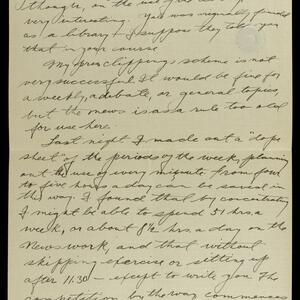 very interesting. Yale was originally founded
as a library - I suppose they told you
that in your course.
My press clippings scheme is not
very successful. It would be fine for
a weekly, a debate, or general topics,
but the news is as a rule too old
for use here.
Last night I made out a "dope
sheet" of the periods of the week, planning
out the use of every minute. From four
to five hours a day can be saved in
this way. I found that by concentrating
I might be able to spend 51 hrs a
week, or about 8½ hrs a day on the
News work, and that without
skipping exercise or sitting up
after 11.30 - except to write you. The
competition by the way commences